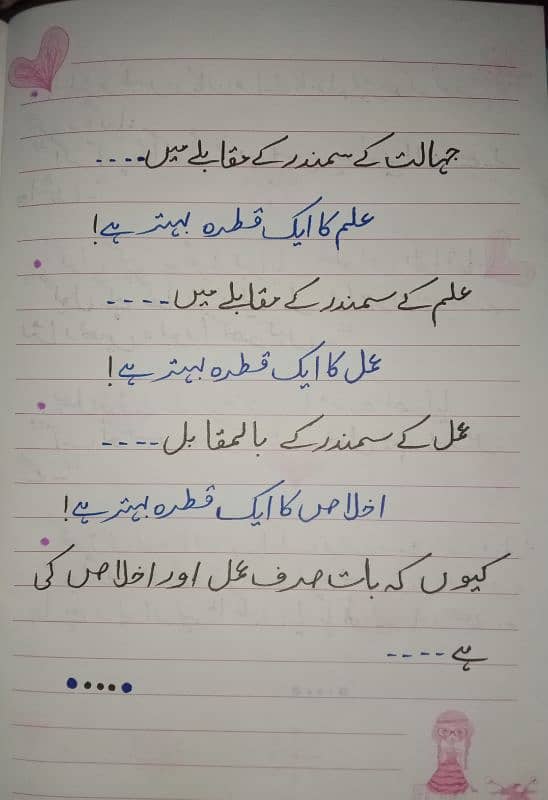 جہالت کے سمندر کے مقابلے میں----
علم کا ایک قطرہ بہتر ہے!
علم کے سمندر کے مقابلے میں----
عمل کا ایک قطرہ بہتر ہے!
عمل کے سمندر کے بالمقابل----
اخلاص کا ایک قطرہ بہتر ہے!
کیوں کہ بات صرف عمل اور اخلاص کی
ہے----